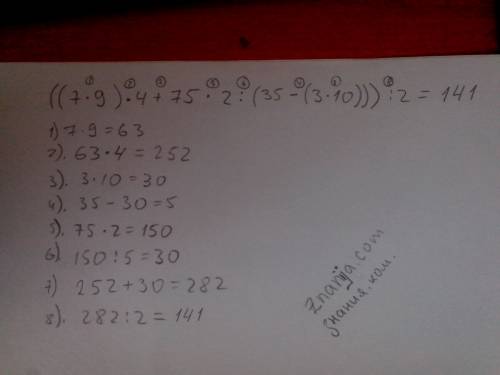 ((7·9)·4+75·2:(35-(3·10))):2=141
1) 7·9=63
2). 63·4=252
3). 3·10=30
4). 35-30=5
5). 75·2=150
6) 150:5=30
7) 252+30=282
8). 282:2=141
Znanija.com
знания.ком.